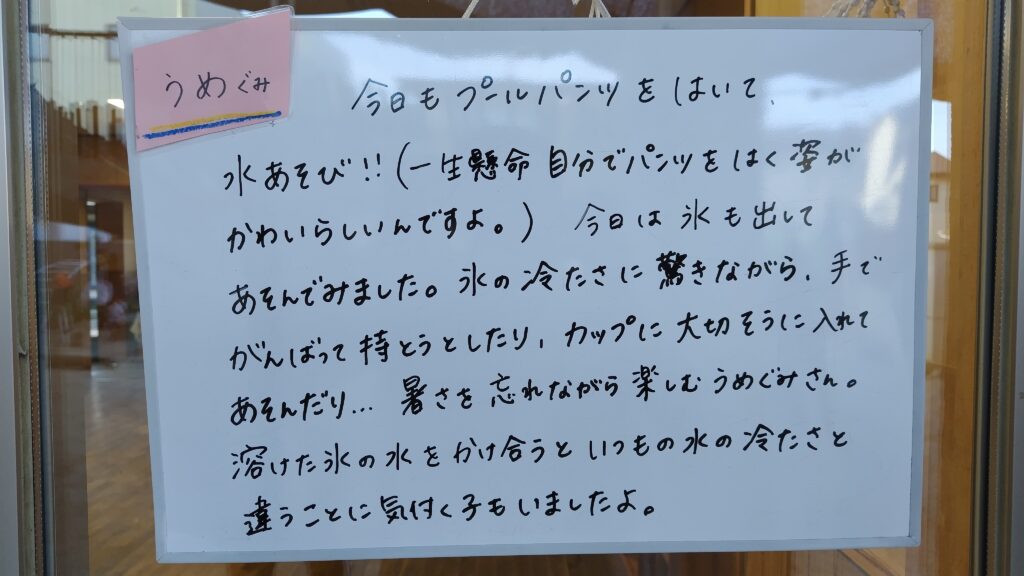 うめぐみ
今日もプールパンツをはいて、
水あそび!!(一生懸命自分でパンツをはく姿が
かわいらしいんですよ。) 今日は氷も出して
あそんでみました。氷の冷たさに驚きながら、手で
がんばって持とうとしたり、カップに大切そうに入れて
あそんだり… 暑さを忘れながら楽しむうめぐみさん。
溶けた氷の水をかけ合うといつもの水の冷たさと
違うことに気付く子もいましたよ。